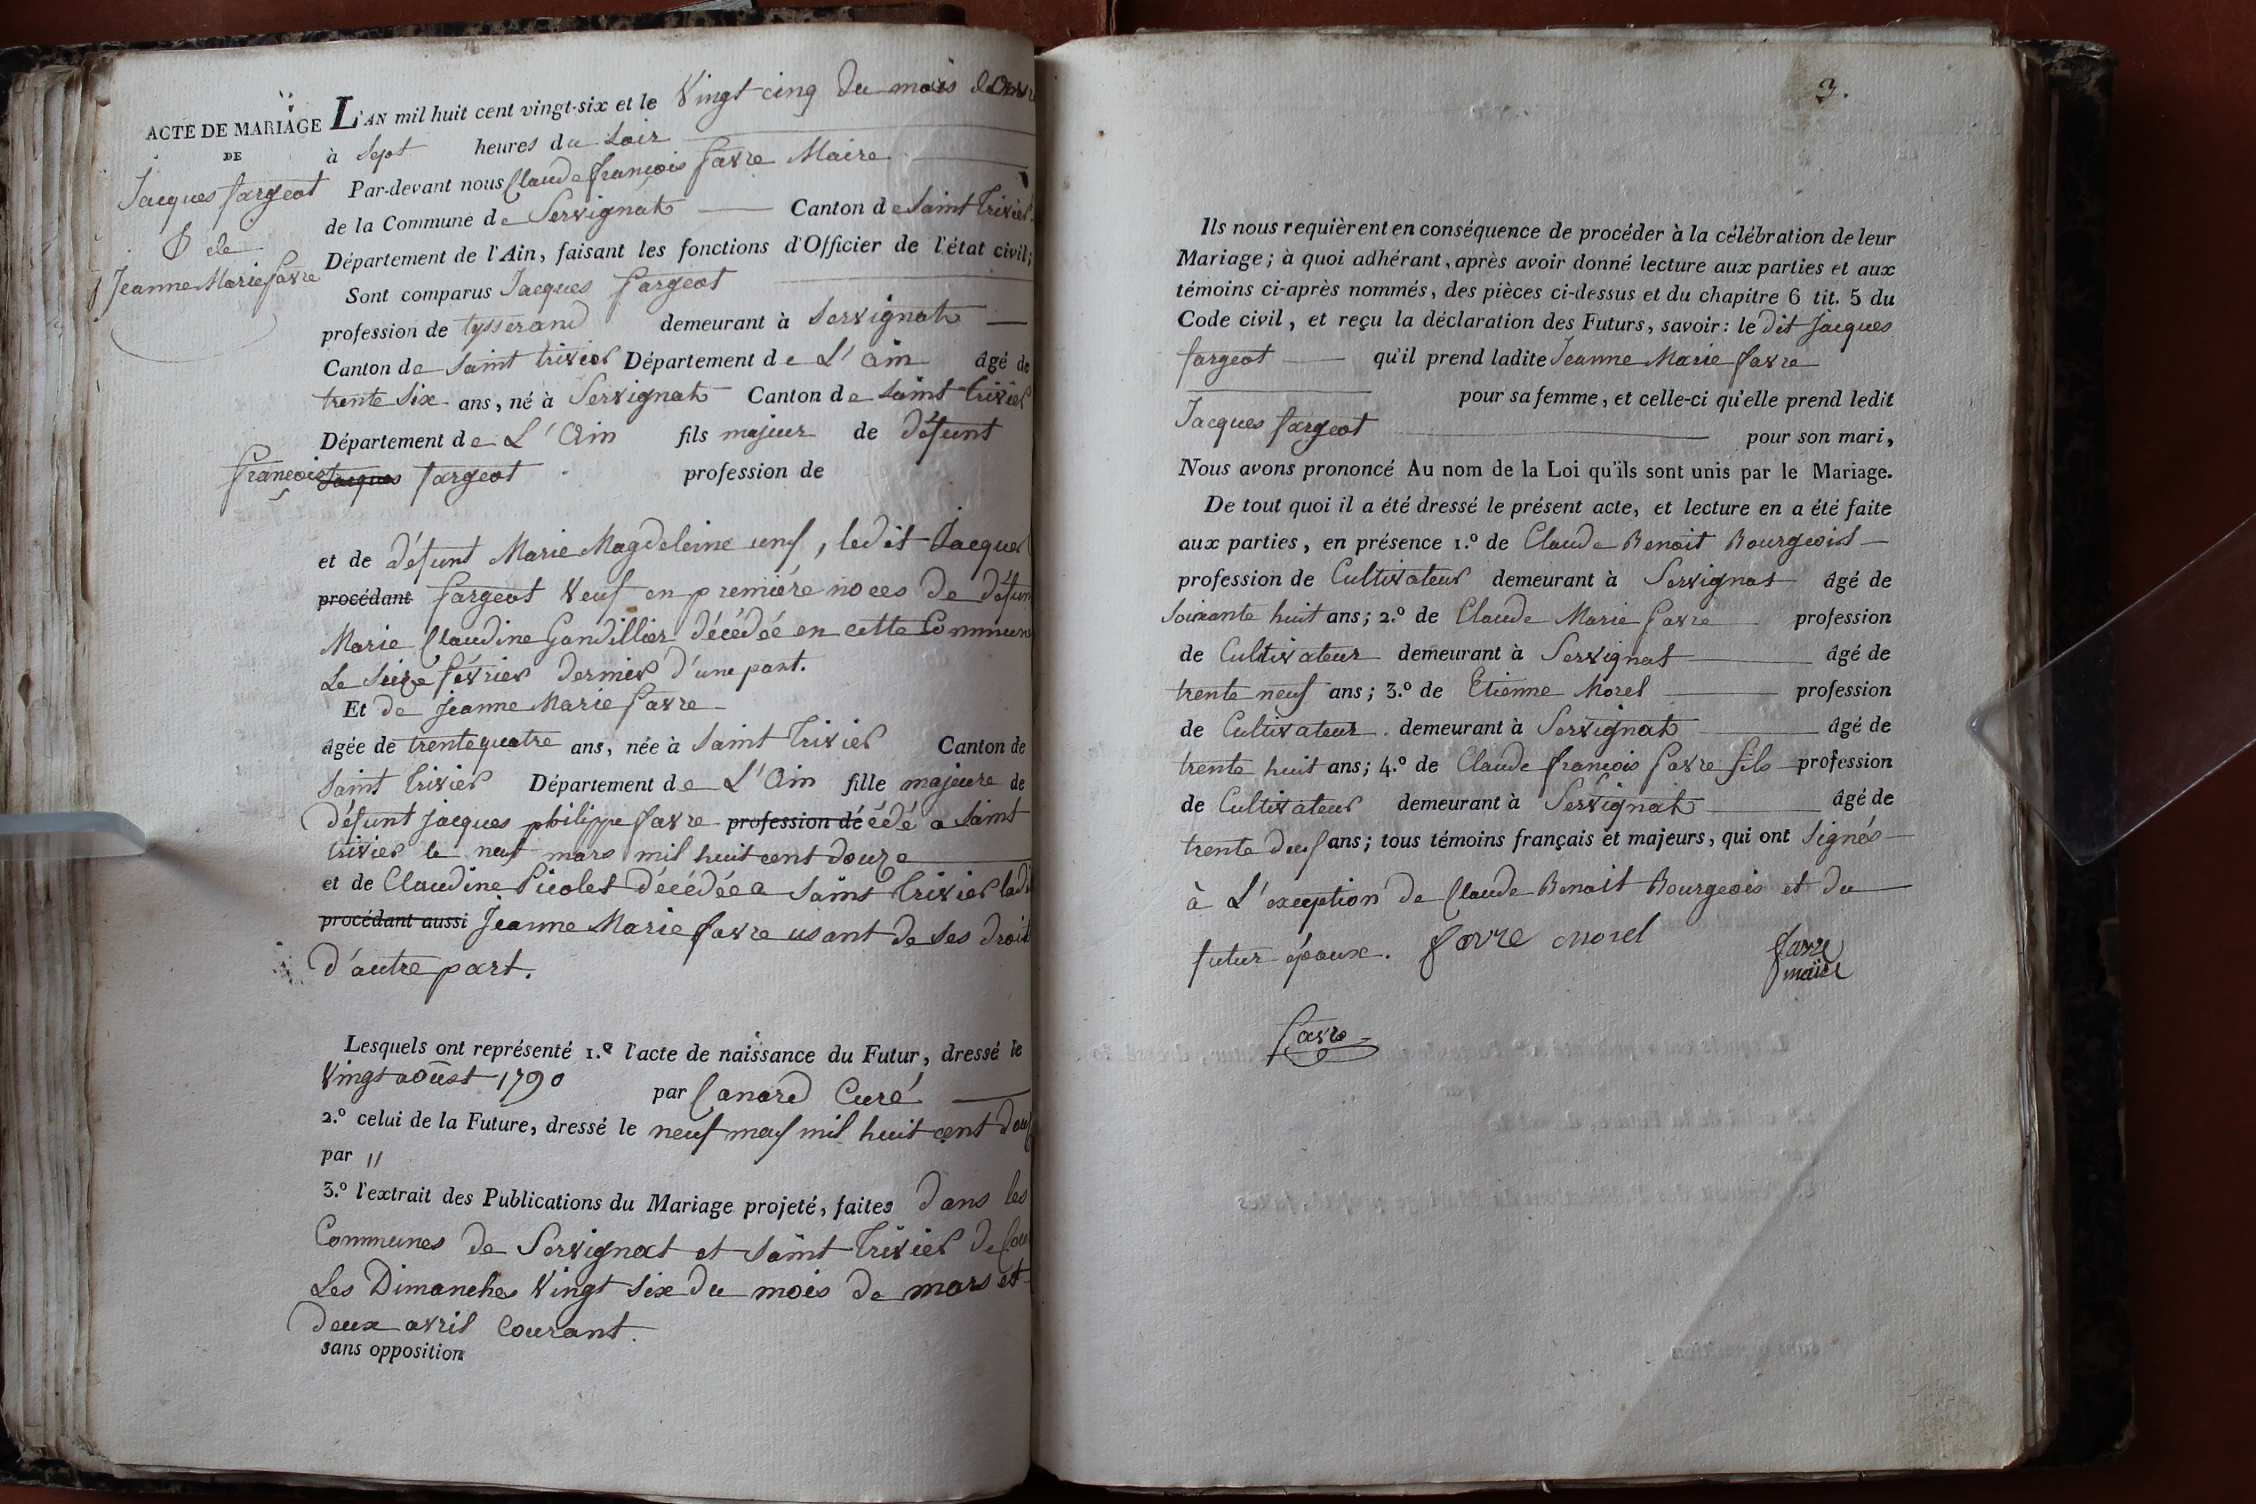 ACTE DE MARIAGE
DE
Jacques fargeot
& de
Jeanne Marie favre
L'AN mil huit cent vingt-six et le Vingt-cinq du mois
à Sept heures du Soir
Par-devant nous Claude françois favre Maire
de la Commune de Servignat Canton de Saint Trivier
Département de l'Ain, faisant les fonctions d'Officier de l'état civil;
Sont comparus Jacques fargeot
profession de tysserand demeurant à Servignat
Canton de Saint trivier Département de L'Ain âgé de
trente Six ans, né à Servignat Canton de Saint trivier
Département de L'Ain fils majeur de défunt
françois Jacques fargeot profession de
et de défunt Marie Magdeleine , ledit Jacques
procédant fargeot Veuf en premiére noces de défun
Marie Claudine Gandillier décédée en cette Commun
Le Seize février dernier d'une part.
Et de Jeanne Marie favre
âgée de trente quatre ans, née à Saint Trivier Canton de
Saint Trivier Département de L'Ain fille majeure de
défunt jacques philippe favre profession dé édé a Saint
trivier le neuf mars mil huit cent douze
et de Claudine Picolet décédée a Saint Trivier ladi
procédant aussi Jeanne Marie favre usant de ses droit
d'autre part.
Lesquels ont représenté 1.º l'acte de naissance du Futur, dressé le
Vingt aoûst 1790 par Canard Curé
2.º celui de la Future, dressé le neuf mil huit cent
par "
3.º l'extrait des Publications du Mariage projeté, faites dans les
Communes de Servignat et Saint Trivier de Cou
Les Dimanches Vingt Six du mois de mars et
deux avril Courant.
sans opposition
3.
Ils nous requièrent en conséquence de procéder à la célébration de leur
Mariage; à quoi adhérant, après avoir donné lecture aux parties et aux
témoins ci-après nommés, des pièces ci-dessus et du chapitre 6 tit. 5 du
Code civil, et reçu la déclaration des Futurs, savoir: le dit Jacques
fargeot qu'il prend ladite Jeanne Marie favre
pour sa femme, et celle-ci qu'elle prend ledit
Jacques fargeot pour son mari,
Nous avons prononcé Au nom de la Loi qu'ils sont unis par le Mariage.
De tout quoi il a été dressé le présent acte, et lecture en a été faite
aux parties, en présence 1.º de Claude Benoit Bourgeois
profession de Cultivateur demeurant à Servignat âgé de
Soixante huit ans; 2.º de Claude Marie favre profession
de Cultivateur demeurant à Servignat âgé de
trente neuf ans; 3.º de Etienne Morel profession
de Cultivateur demeurant à Servignat âgé de
trente huit ans; 4.º de Claude françois favre fils profession
de Cultivateur demeurant à Servignat âgé de
trente ans; tous témoins français et majeurs, qui ont Signés
à L'exception de Claude Benoit Bourgeois et du
futur époux. favre morel favre
maire
favre